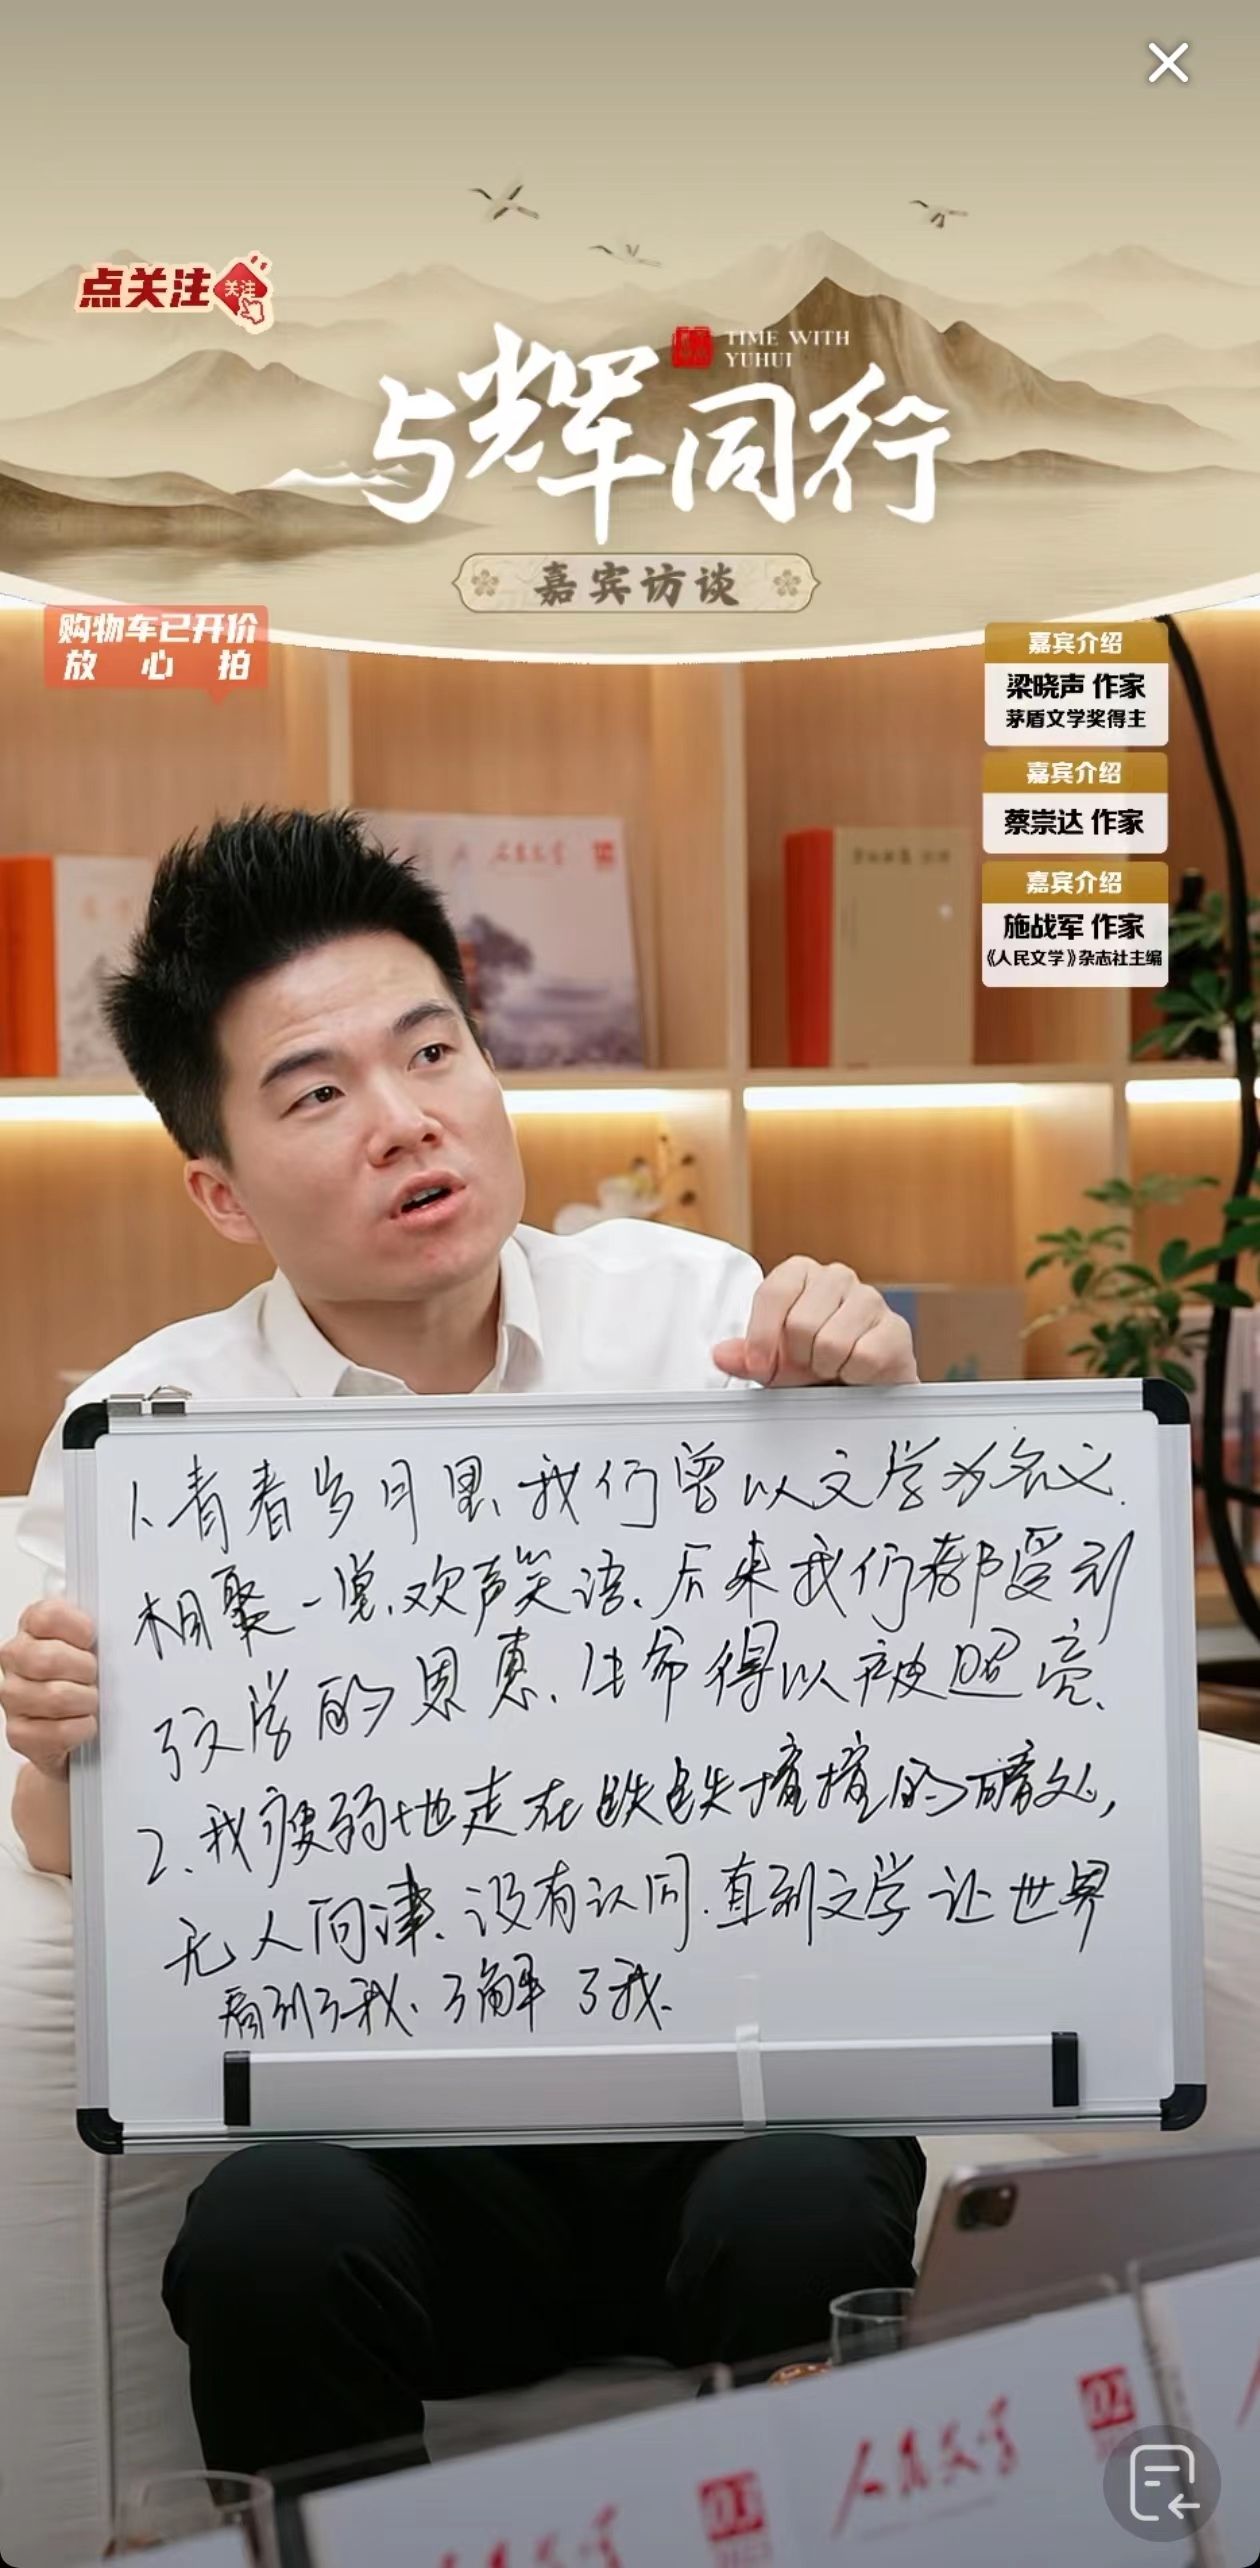 点关注
关注
TIME WITH
YUHUI
与辉同行
嘉宾访谈
购物车已开价
放 心 拍
嘉宾介绍
梁晓声 作家
茅盾文学奖得主
嘉宾介绍
蔡崇达 作家
嘉宾介绍
施战军 作家
《人民文学》杂志社主编
人民文学
1、青春岁月里、我们曾以文学为名义.
相聚一堂、欢声笑语、后来我们都受到
了文学的恩惠、生命得以被照亮、
2、我瘦弱地走在跌跌撞撞的暗处,
无人问津、没有认同.直到文学让世界
看到了我、了解了我.
人民文学
人民文学